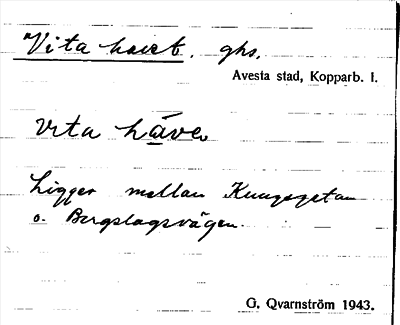 Vita havet. ghs.
Avesta stad, Kopparb. l.
vita häve
Ligger mellan Kungsgatan
o. Bergslagsvägen.
G. Qvarnström 1943.